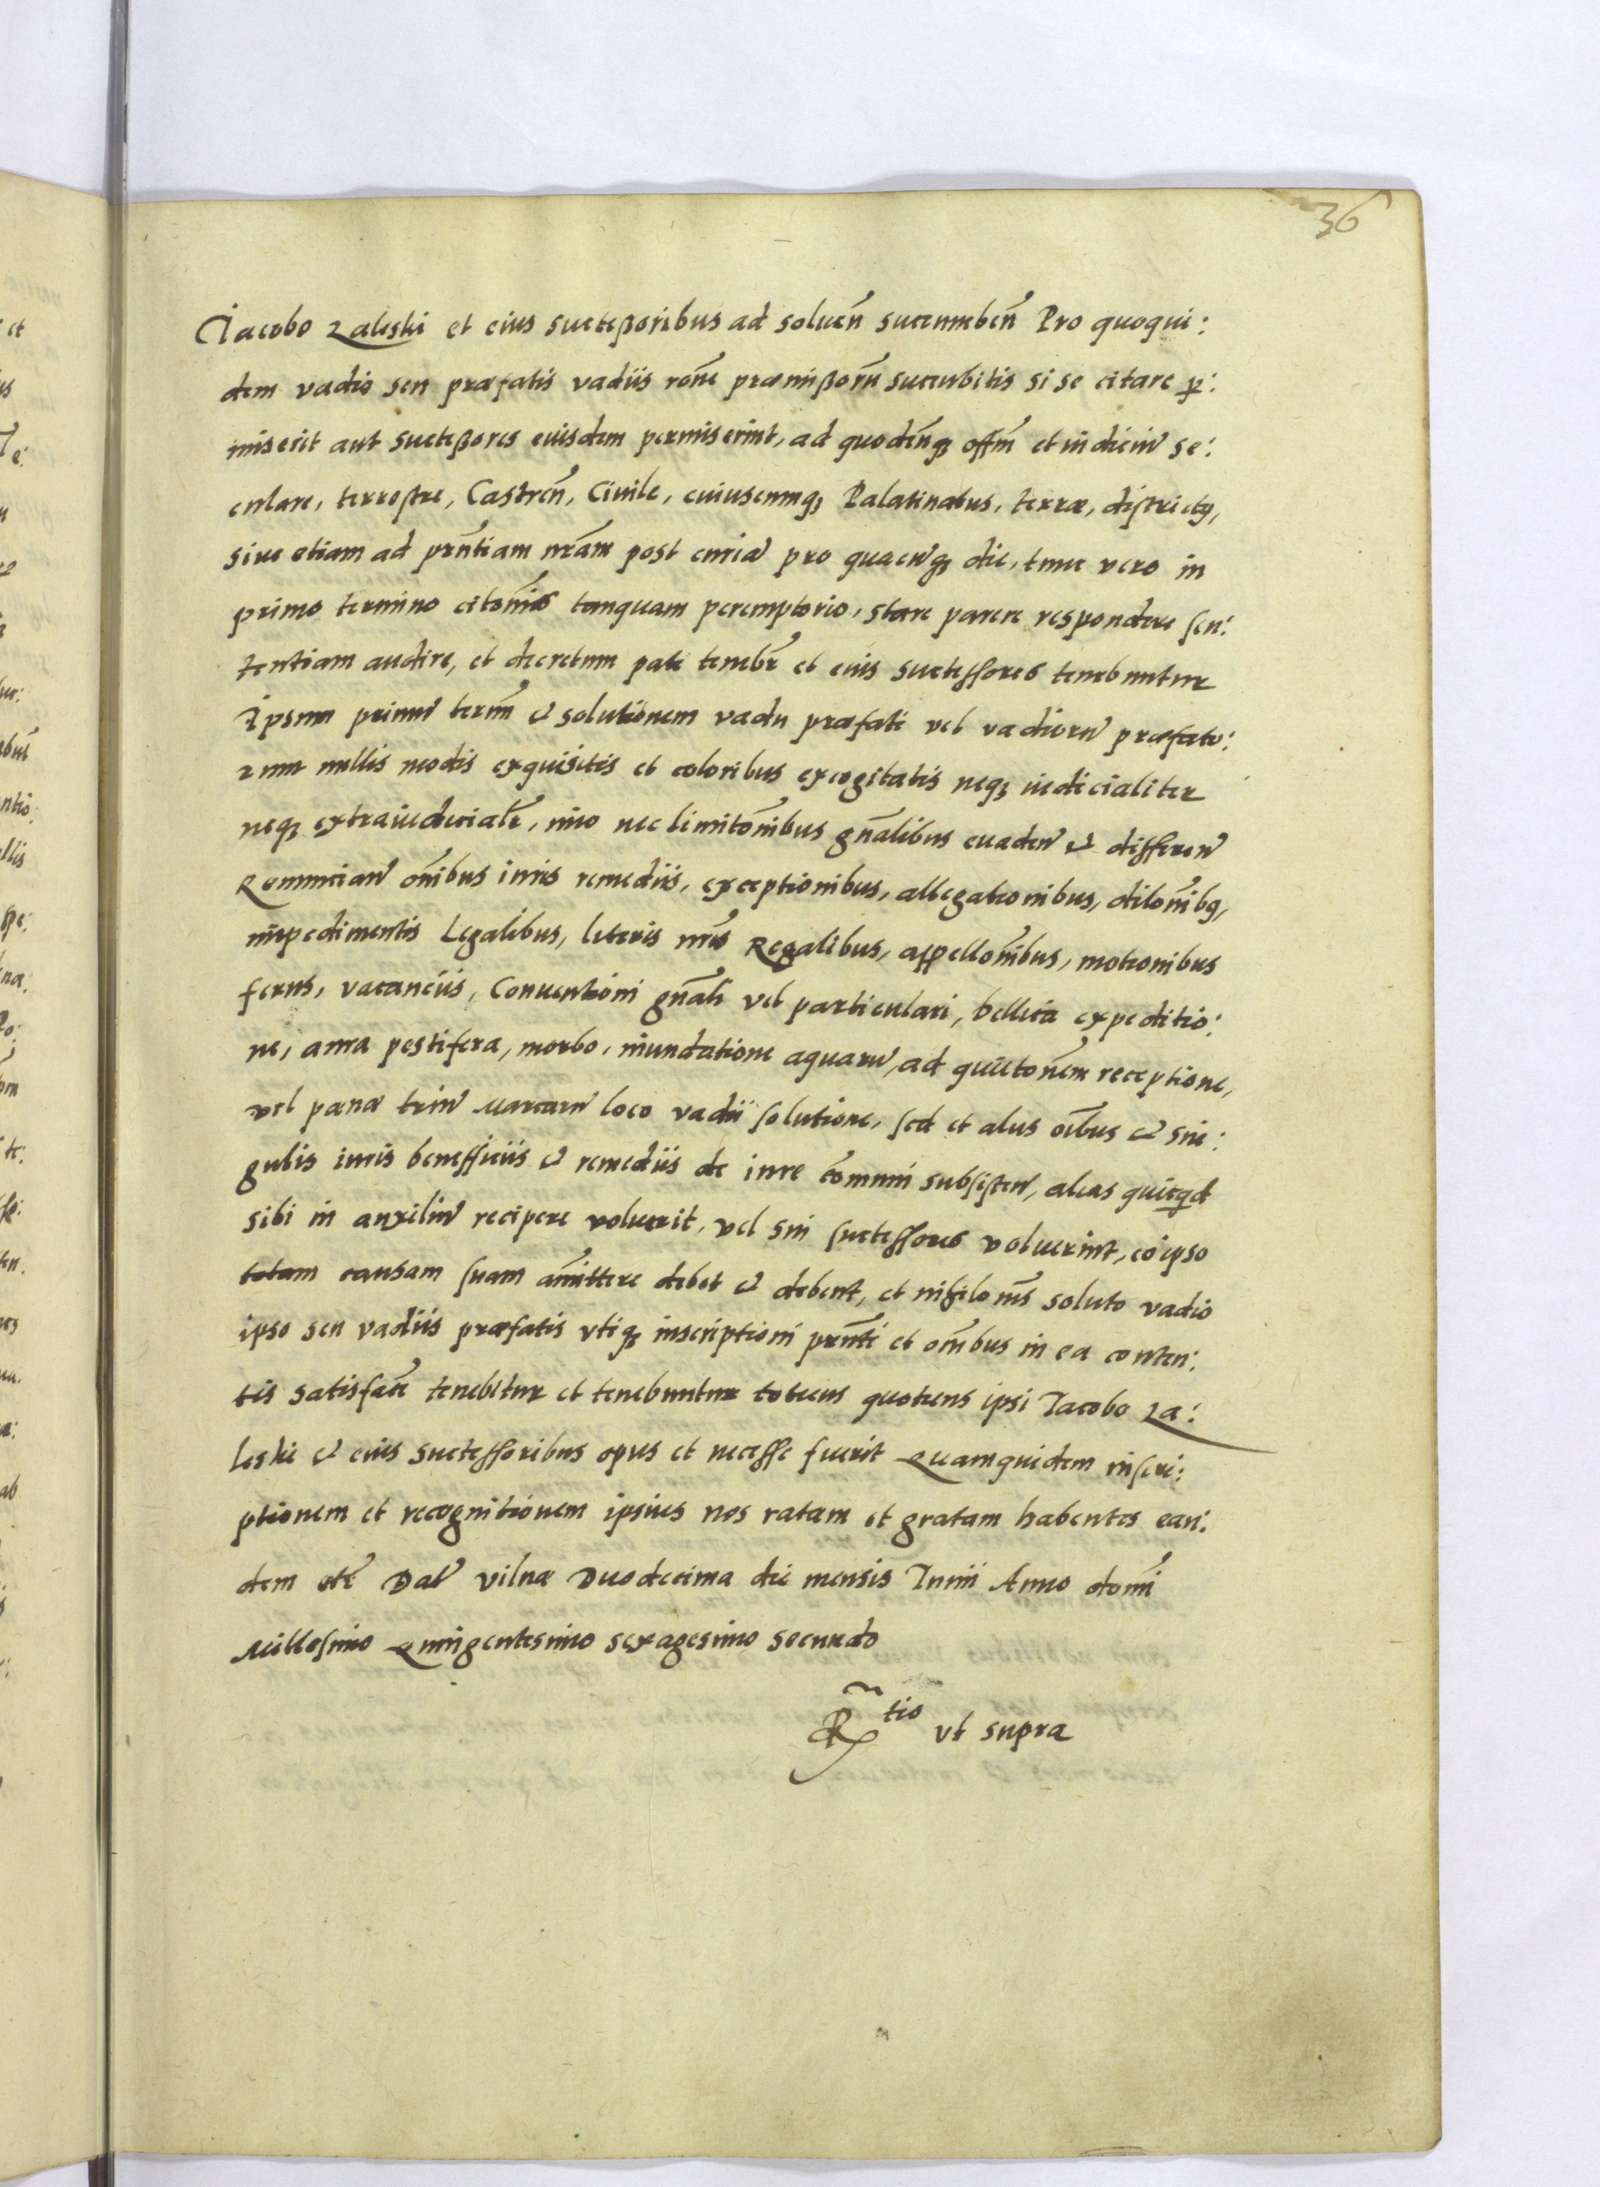 36
Iacobo Zaleski et eius succeßoribus ad soluen̄ succumben̄ Pro quoqui:
dem vadio seu præfatis vadiis rōne præmißorū succubitis si se citare p̱:
miserit aut succeßores eiusdem permiserint, ad quodcūq₃ offm̄ et iudiciū se:
culare, terrestre, Castren̄, Ciuile, cuiuscumq₃ Palatinatus, terræ, districtq,
siue etiam ad pn̄tiam nr̄am post curiā pro quacūq₃ die, tunc vero in
primo termino citōnis tanquam peremptorio, stare parere respondere sen:
tentiam audire, et decretum pati tenebr̄ et eius successores tenebuntur
Ipsum primū term̄ & solutionem vadii præfati vel vadiorū præfato:
rum nullis modis exquisitis et coloribus excogitatis neq₃ iudicialiter
neq₃ extraiudicialr̄, imo nec limitōnibus gn̄alibus euaden̄ & differen̄
Renuncian̄ om̄ibus iuris remediis, exceptionibus, allegationibus, dilōnibq,
impedimentis Legalibus, literis nr̄is Regalibus, appellōnibus, motionibus
feriis, vacanciis, Conuentioni gn̄ali vel particulari, bellica expeditio:
ne, aura pestifera, morbo, inundatione aquarū, ad quietōnem receptione,
vel pœnæ triū Marcarū loco vadii solutione, sed et aliis oībus & sin:
gulis iuris benefficiis & remediis de iure com̄uni subsisten̄, alias quicqd
sibi in auxiliū recipere voluerit, vel sui successores voluerint, eo ipso
totam causam suam am̄ittere debet & debent, et nihilomns̄ soluto vadio
ipso seu vadiis præfatis vtiq₃ inscriptioni pn̄ti et om̄bus in ea conten:
tis satisfacē tenebitur et tenebuntur totiens quotiens ipsi Iacobo Za:
leski & eius successoribus opus et necesse fuerit Quamquidem inscri:
ptionem et recognitionem ipsius nos ratam et gratam habentes ean:
dem etc̄ Dat̄ Vilnæ Duodecima die mensis Iunii Anno domī
Millesimo Quingentesimo sexagesimo secundo
R̄tio vt supra